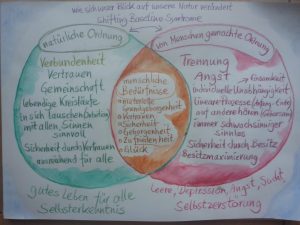 Wie sich unser Blick auf unsere Natur verändert
Shifting Baseline Syndrome
natürliche Ordnung
Verbundenheit
Vertrauen
Gemeinschaft
lebendige Kreisläufe
In sich lauschen
mit allen Sinnen
sinnvoll
Sicherheit durch Vertrauen
ausreichend für alle
menschliche
Bedürfnisse
materielle
Grundgeborgenheit
Vertrauen
Sicherheit
Geborgenheit
Zufriedenheit
Glück
von Menschen gemachte Ordnung
Trennung
Angst
Einsamkeit
individuelle Unabhängigkeit
Lineare Prozesse (Anfang - Ende)
auf andere hören
immer schwachsinniger
sinnlos
Sicherheit durch Besitz
Besitzmaximierung
gutes Leben für alle
Selbsterkenntnis
Leere, Depression, Angst, Sucht,
Selbstzerstörung